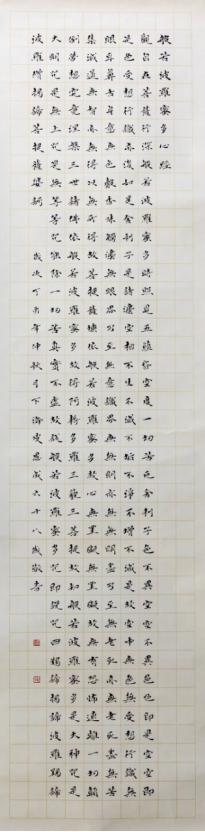 般若波羅蜜多心經
觀自在菩薩行深般若波羅蜜多時照見五蘊皆空度一切苦厄舍利子色不異空空不異色色即是空空即
是色受想行識亦復如是舍利子是諸法空相不生不滅不垢不淨不增不減是故空中無色無受想行識無
眼耳鼻舌身意無色聲香味觸法無眼界乃至無意識界無無明亦無無明盡乃至無老死亦無老死盡無苦
集滅道無智亦無得以無所得故菩提薩埵依般若波羅蜜多故心無罣礙無罣礙故無有恐怖遠離一切顛
倒夢想究竟涅槃三世諸佛依般若波羅蜜多故得阿耨多羅三藐三菩提故知般若波羅蜜多是大神咒是
大明咒是無上咒是無等等咒能除一切苦真實不虛故說般若波羅蜜多咒即說咒曰揭諦揭諦波羅揭諦
波羅僧揭諦菩提薩婆訶 歲次丁未年仲秋月下 六十八歲敬書